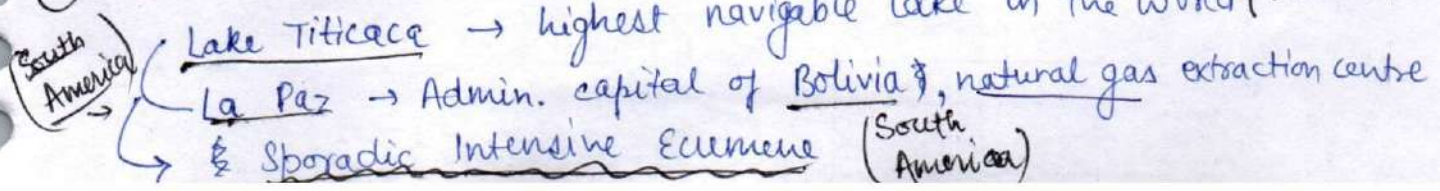 (South America) →
Lake Titicaca → highest navigable lake in the world
La Paz → Admin. capital of Bolivia, natural gas extraction centre
→ Sporadic Intensive Ecumene (South America)